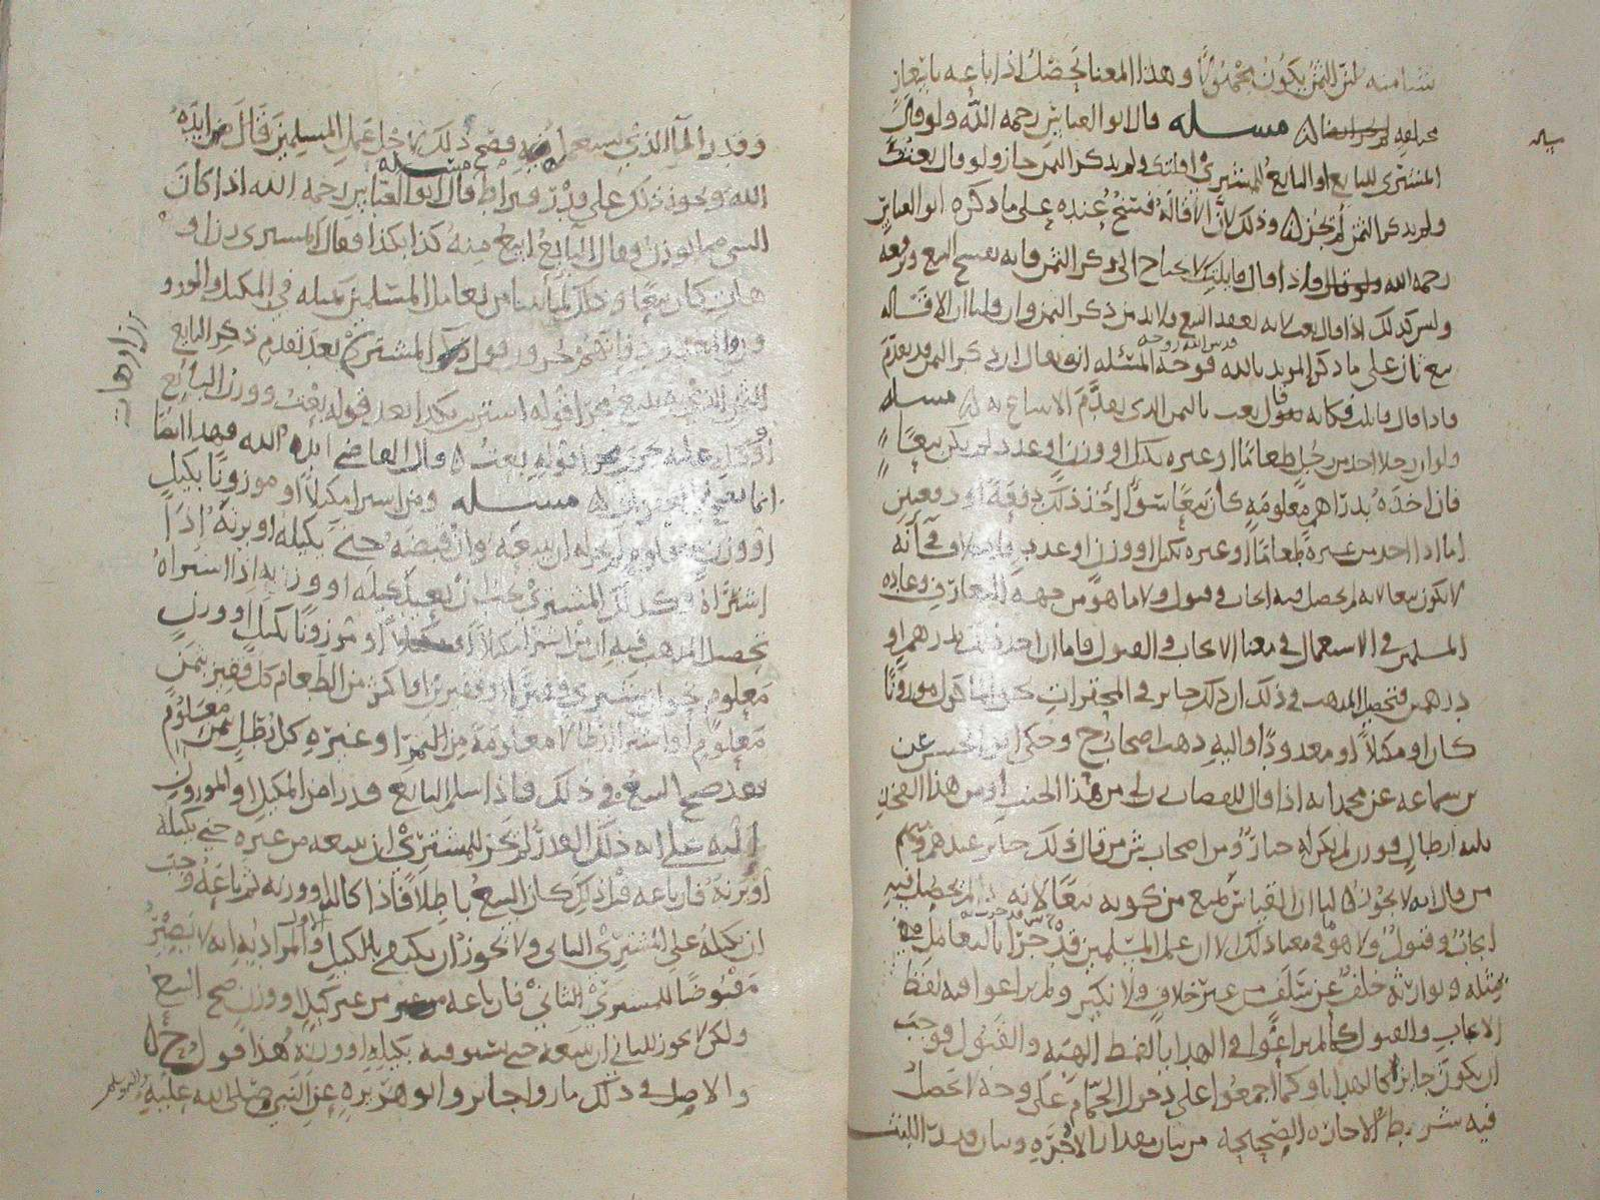 شيا منه لان الثمن يكون مجهولا وهذا المعنا يحصل اذا باعه باثمان
مختلفه مسله قال ابو العباس رحمه الله ولو قال
المشتري للبايع او البايع للمشتري اقلتك ولم يذكر الثمن جاز ولو قال بعتك
ولم يذكر الثمن لم يجز وذلك لان الاقاله فسخ عنده على ما ذكره ابو العباس
رحمه الله فاذا قال قايلتك لا يحتاج الى ذكر الثمن فانه يفسخ البيع ويرفعه
وليس كذلك اذا قال بعت لانه يعقد البيع ولا بد من ذكر الثمن وان قلنا ان الاقاله
بيع ثان على ما ذكره المويد بالله قدس الله روحه فوجه المسئله انه يقال ان ذكر الثمن قد تقدم
فاذا قال قايلتك فكانه يقول بعت بالثمن الذي تقدم الابتياع به مسله
ولو ان رجلا اخذ من رجل طعاما او غيره بكيل او وزن او عدد لم يكن بيعا
فان اخذه بدراهم معلومه كان بيعا سوا اخذ ذلك دفعة او دفعتين
اما اذا اخذ من غيره طعاما او غيره بكيل او وزن او عدد فلا خلاف في انه
لا يكون بيعا لانه لم يحصل فيه ايجاب وقبول ولا ما هو من جهة التعارف وعادة
المسلمين في الاستعمال في معنا الايجاب والقبول فاما ان اخذ ذلك بدرهم او
درهمين فتحصيل المذهب في ذلك ان ذلك جايز في المحقرات ماكول موزونا
كان او مكيلا او معدودا واليه ذهب اصحاب ح وحكى ابو الحسن عن
بن سماعه عن محمد انه اذا قال للقصاب زن لي من هذا الجنب او من هذا الفخذ
ثلثه ارطال فوزن لم يكن له خيار ومن اصحاب ش من قال ذلك جايز عندهم ومنهم
من قال انه لا يجوز لنا ان القياس يمنع من كونه بيعا لانه لم يحصل فيه
ايجاب وقبول ولا هو في معنا ذلك الا ان عمل المسلمين قد جرا بالتعامل
بمثله وتوارثه خلف عن سلف من غير خلاف ولا نكير ولم يراعوا فيه لفظ
الايجاب والقبول كما لم يراعوا في الهدايا لفظ الهبة والقبول فوجب
ان يكون جايزا كالهدايا وكما اجمعوا على دخول الحمام على وجه لا تحصل
فيه شرايط الاجازه الصحيحه من بيان مقدار الاجره وبيان مدة اللبث
وقدر الما الذي يستعمل فيه فصح ذلك لاجل عمل المسلمين قال ايده
الله ويجوز ذلك على قدر قيراط مسله قال ابو العباس رحمه الله اذا كان
الشي مما يوزن فقال البايع ابيع منه كذا بكذا فقال المشتري زن او
هات كان بيعا وذلك لما بينا من تعامل المسلمين بمثله في المكيل والموزون
المشتري بعد تقدم ذكر البايع
الثمن مجرا قوله اشتريت بكذا بعد قوله بعت ووزن البايع
او كيله عليه جرى مجرا قوله بعت قال القاضي ايده الله فهذا ايضا
انما يصح في المحقرات مسله ومن اشترا مكيلا او موزونا بكيل
او وزن معلوم لم يجز له ان يبيعه وان قبضه حتى يكيله او يزنه اذا
اشتراه وكذلك المشتري يجب ان يعيد كيله او وزنه اذا اشتراه
تحصيل المذهب فيه ان من اشترا مكيلا او موزونا بكيل او وزن
معلوم نحو ان يشتري قفيزا او قفيزين او اكثر من الطعام كل قفيز بثمن
معلوم او اشترا ارطالا معلومة من التمر او غيره كل رطل بثمن معلوم
فقد صح البيع في ذلك فاذا سلم البايع قدرا من المكيل او الموزون
اليه على انه ذلك القدر لم يجز للمشتري ان يبيعه من غيره حتى يكيله
او يزنه فان باعه قبل ذلك كان البيع باطلا فاذا كاله او وزنه ثم باعه وجب
ان يكيله على المشتري الثاني ولا يجوز ان يكتفي بالكيل الاول والمراد به انه لا يصير
مقبوضا للمشتري الثاني فان باعه من غير كيل او وزن صح البيع
ولكن لا يجوز للثاني ان يبيعه حتى يستوفيه بكيله او وزنه هذا قول ح
والاصل في ذلك ما روا جابر وابو هريره عن النبي صلى الله عليه واله وسلم
زن او هات